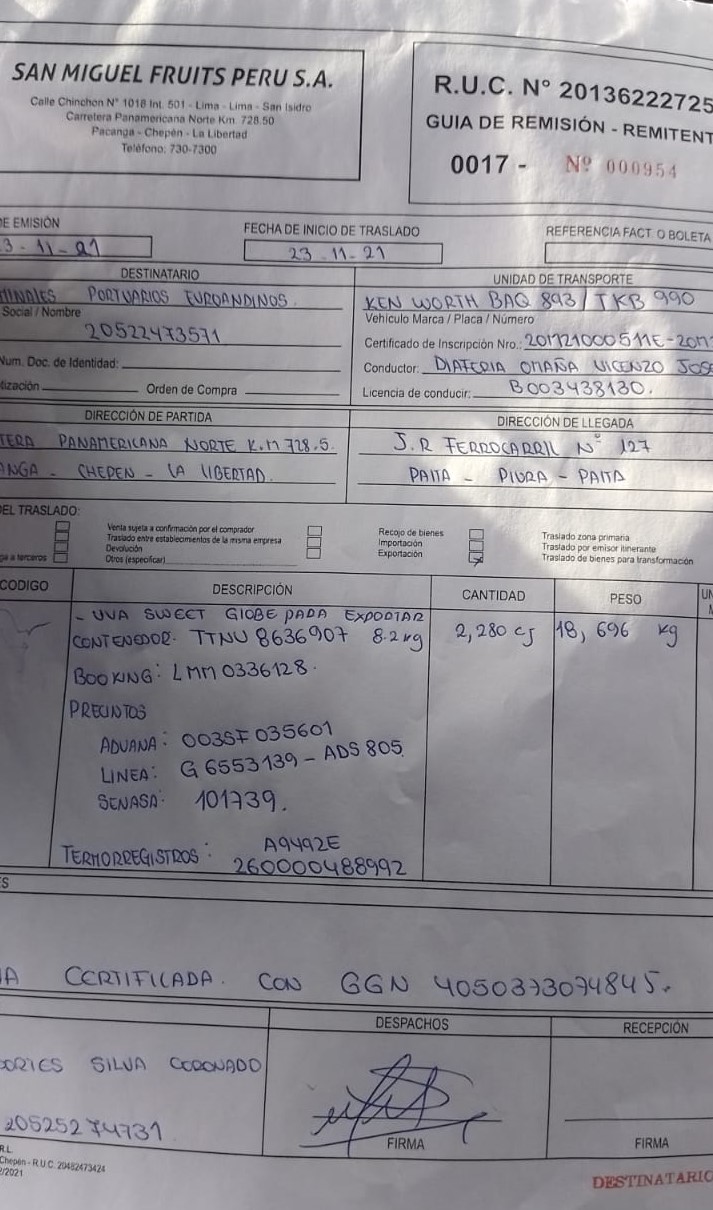 SAN MIGUEL FRUITS PERU S.A.
Calle Chinchon N° 1018 Int. 501 - Lima - Lima - San Isidro
Carretera Panamericana Norte Km. 728.50
Pacanga - Chepén - La Libertad
Teléfono: 730-7300
R.U.C. N° 20136222725
GUIA DE REMISIÓN - REMITENT
0017 - Nº 000954
DE EMISIÓN
3-11-21
FECHA DE INICIO DE TRASLADO
23.11.21
REFERENCIA FACT. O BOLETA
DESTINATARIO
MINALES PORTUARIOS EUROANDINOS
Social / Nombre
20522473571
Num. Doc. de Identidad:
tización Orden de Compra
UNIDAD DE TRANSPORTE
KEN WORTH BAQ 893 / TKB 990
Vehículo Marca / Placa / Número
Certificado de Inscripción Nro.: 201721000511E-2017
Conductor: DIATERIA OMAÑA VICENZO JOSE
Licencia de conducir: B003438130.
DIRECCIÓN DE PARTIDA
TERA PANAMERICANA NORTE K.M 728.5.
ANGA - CHEPEN - LA LIBERTAD.
DIRECCIÓN DE LLEGADA
J.R FERROCARRIL N° 127
PAITA - PIURA - PAITA
DEL TRASLADO:
ga a terceros
Venta sujeta a confirmación por el comprador
Traslado entre establecimientos de la misma empresa
Devolución
Otros (especificar)
Recojo de bienes
Importación
Exportación
Traslado zona primaria
Traslado por emisor itinerante
Traslado de bienes para transformación
CODIGO DESCRIPCIÓN CANTIDAD PESO UN
- UVA SWEET GLOBE PARA EXPORTAR
CONTENEDOR- TTNU 8636907 8.2 kg 2,280 cj 18,696 kg
BOOKING: LMM0336128.
PRECINTOS
ADUANA: 003SF035601
LINEA: G6553139 - ADS 805.
SENASA: 101739.
TERMORREGISTROS: A9492E
260000488992
ES
A CERTIFICADA. CON GGN 4050373074845.
DESPACHOS
RECEPCIÓN
ORIES SILVA CORONADO
20525274731
FIRMA
FIRMA
R.L.
Chepén - R.U.C. 20482473424
/2021
DESTINATARIO